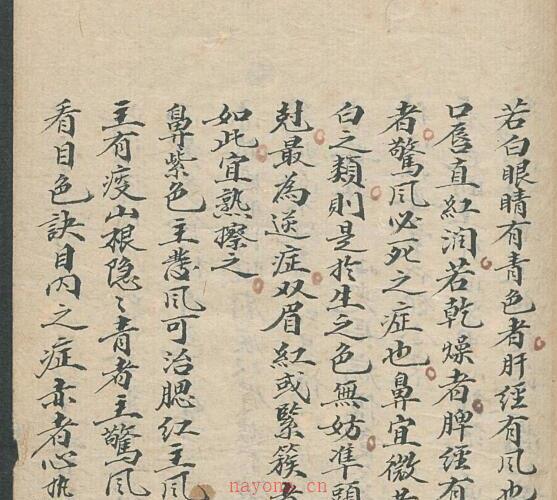 若白眼睛有青色者肝經有风也
口唇直紅润若乾燥者脾經有
者驚风必死之症也鼻宜微黄
白之類則是於生之色無妨準頭
尅最為逆症双眉紅或緊簇者
如此宜熟擦之
鼻紫色主驚风可治腮紅主风
主有痰山根隐〻青者主驚风
看目色訣目内之症赤者心扰
nayona.cn